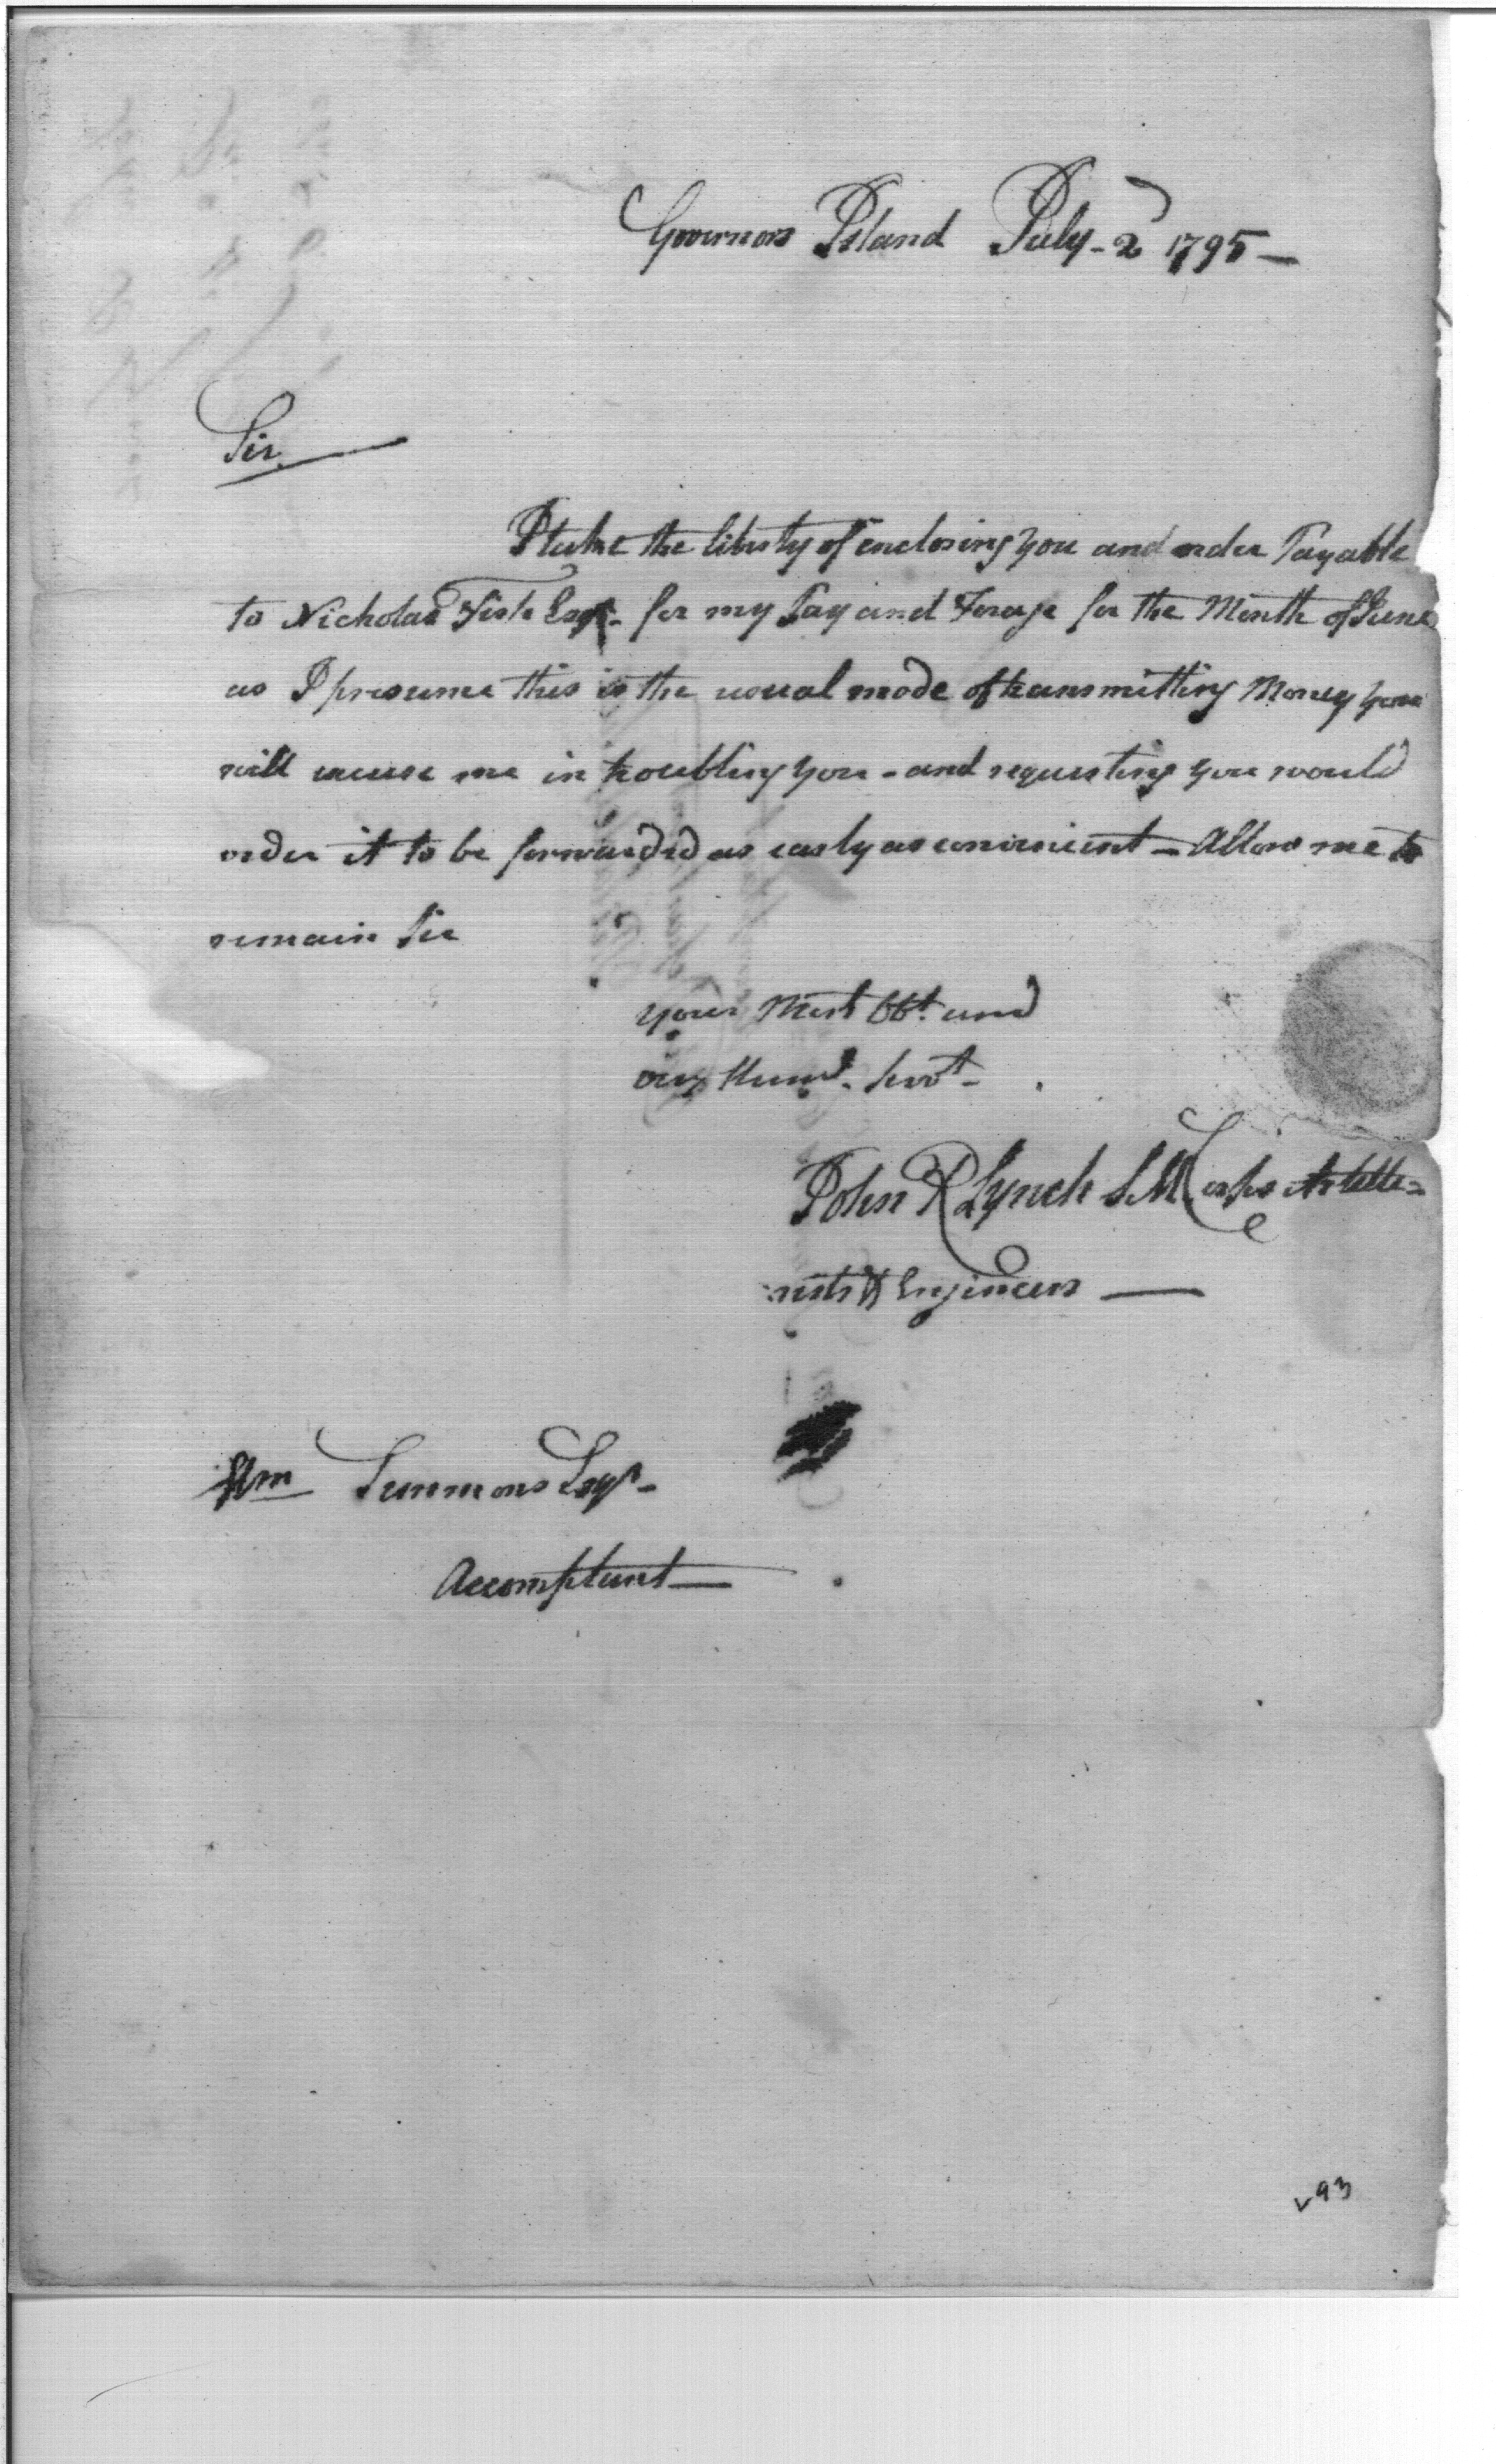 Governors Island July - 2d 1795 —
Sir
I take the liberty of enclosing you and order Payable
to Nicholas Fish Esqr - for my Pay and Forage for the Month of June
as I presume this is the usual mode of transmitting Money you
will excuse me in troubling you - and requesting you would
order it to be forwarded as early as convenient — Allow me to
remain Sir
your Most Obt. and
very Huml. Servt -
John R Lynch S.M Corps Artille=
rists & Engineers —
Wm Simmons Esqr -
Accomptant —
v93